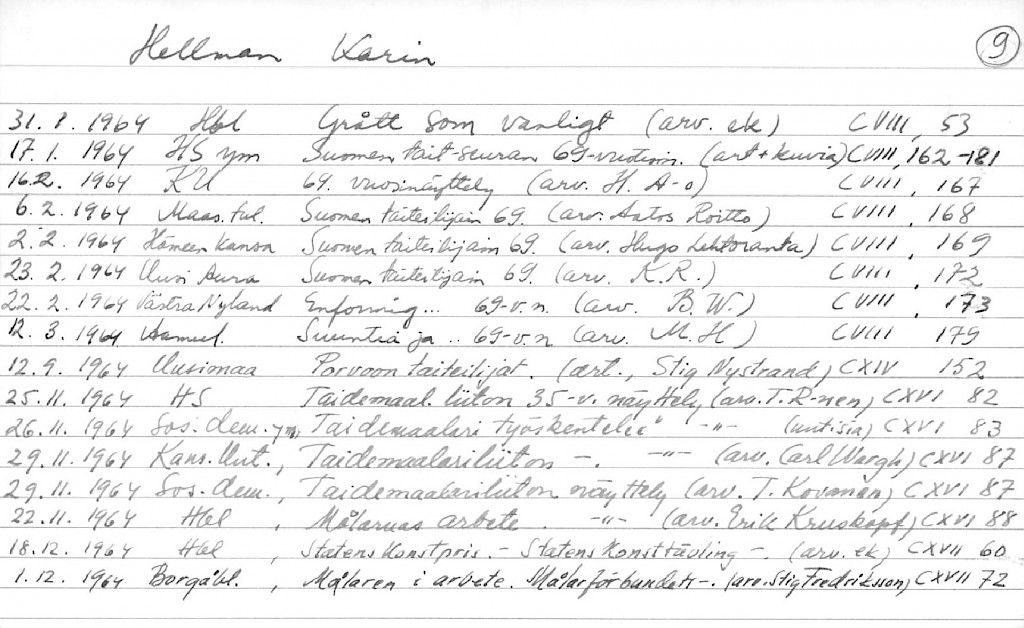 Hellman Karin 9
31.1.1964 Hbl Grått som vanligt (arv. ek) CVIII, 53
17.1.1964 HS ym Suomen tait-seuran 69-vuotisn. (art+kuvia) CVIII, 162-181
16.2.1964 KU 69. vuosinäyttely (arv. H. A-o) CVIII, 167
6.2.1964 Maas.tul. Suomen taiteilijain 69. (arv. Antos Roitto) CVIII, 168
2.2.1964 Hämeen Kansa Suomen taiteilijain 69. (arv. Hugo Lehtoranta) CVIII, 169
23.2.1964 Uusi Aura Suomen taiteilijain 69. (arv. K.R.) CVIII, 172
22.2.1964 Västra Nyland Enformig... 69-v.n. (arv. B.W.) CVIII, 173
12.3.1964 Aamul. Suuntia ja .. 69-v.n (arv. M.H) CVIII 179
12.9.1964 Uusimaa Porvoon taiteilijat. (art., Stig Nystrand) CXIV 152
25.11.1964 HS Taidemaal. liiton 35-v. näyttely (arv. T.R-nen) CXVI 82
26.11.1964 Sos.dem. ym, Taidemaalari työskentelee" -"- (uutisia) CXVI 83
29.11.1964 Kans.Uut., Taidemaalariliiton -. -"- (arv. Carl Wargh) CXVI 87
29.11.1964 Sos.dem., Taidemaalariliiton näyttely (arv. T. Kovanen) CXVI 87
22.11.1964 Hbl, Målarnas arbete. -"- (arv. Erik Kruskopf) CXVI 88
18.12.1964 Hbl, Statens Konstpris. - Statens Konsttävling -. (arv. ek) CXVII 60
1.12.1964 Borgåbl., Målaren i arbete. Målarförbundets -. (arv. Stig Fredriksson) CXVII 72